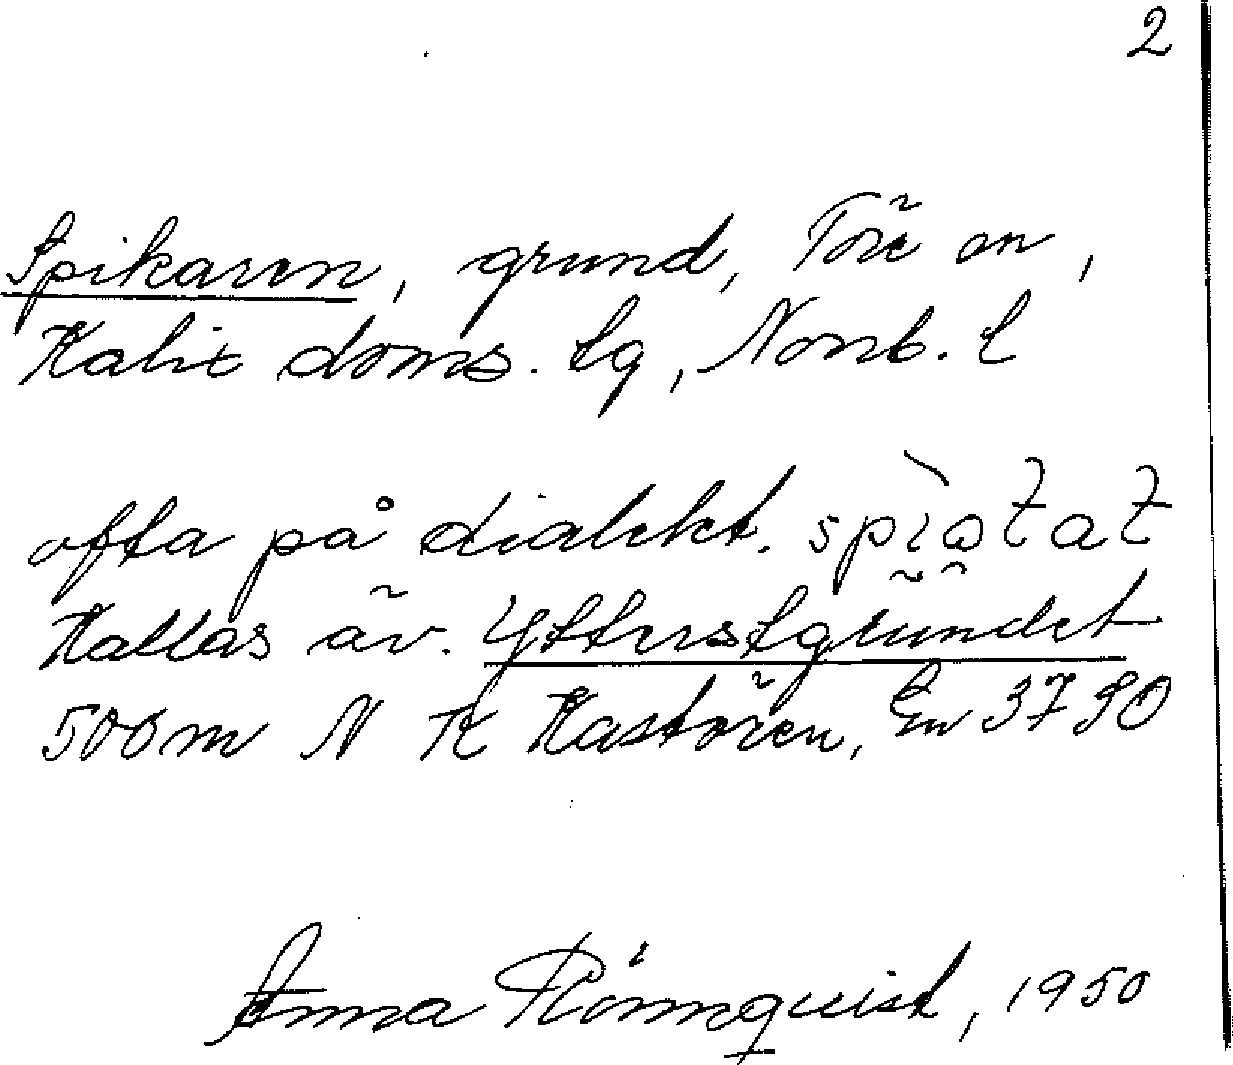 2
Spikaren, grund, Töre sn,
Kalix doms. lg, Norrb. l
ofta på dialekt.
Kallas äv. Ytterstgrundet
500 m N K Kastören, En 3790
Anna Rönnquist, 1950